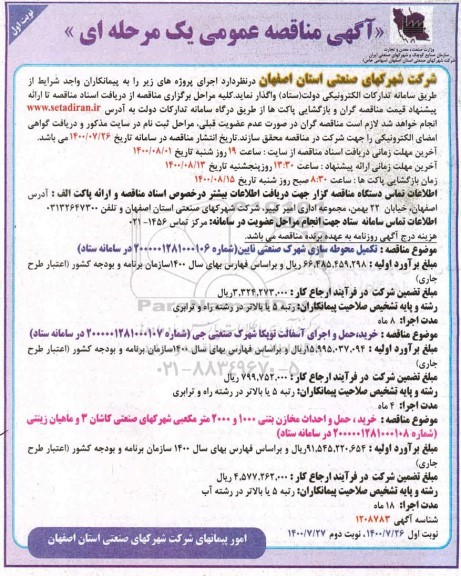 نوبت اول
«آگهی مناقصه عمومی یک مرحله ای»
وزارت صنعت، معدن و تجارت
سازمان صنایع کوچک و شهرکهای صنعتی ایران
شرکت شهرکهای صنعتی استان اصفهان (سهامی خاص)
شرکت شهرکهای صنعتی استان اصفهان درنظردارد اجرای پروژه های زیر را به پیمانکاران واجد شرایط از
طریق سامانه تدارکات الکترونیکی دولت(ستاد) واگذار نماید.کلیه مراحل برگزاری مناقصه از دریافت اسناد مناقصه تا ارائه
پیشنهاد قیمت مناقصه گران و بازگشایی پاکت ها از طریق درگاه سامانه تدارکات دولت به آدرس www.setadiran.ir
انجام خواهد شد لازم است مناقصه گران در صورت عدم عضویت قبلی، مراحل ثبت نام در سایت مذکور و دریافت گواهی
امضای الکترونیکی را جهت شرکت در مناقصه محقق سازند.تاریخ انتشار مناقصه در سامانه تاریخ ۱۴۰۰/۰۷/۲۶ می باشد.
آخرین مهلت زمانی دریافت اسناد مناقصه از سایت : ساعت ۱۹ روز شنبه تاریخ ۱۴۰۰/۰۸/۰۱
آخرین مهلت زمانی ارائه پیشنهاد : ساعت ۱۳:۳۰ روزپنجشنبه تاریخ ۱۴۰۰/۰۸/۱۳
زمان بازگشایی پاکت ها : ساعت ۸:۳۰ صبح روز شنبه تاریخ ۱۴۰۰/۰۸/۱۵
اطلاعات تماس دستگاه مناقصه گزار جهت دریافت اطلاعات بیشتر درخصوص اسناد مناقصه و ارائه پاکت الف : آدرس
اصفهان، خیابان ۲۲ بهمن، مجموعه اداری امیر کبیر، شرکت شهرکهای صنعتی استان اصفهان و تلفن ۰۳۱۳۲۶۴۷۳۰۰
اطلاعات تماس سامانه ستاد جهت انجام مراحل عضویت در سامانه: مرکز تماس ۱۴۵۶-۰۲۱
هزینه درج آگهی روزنامه به عهده برنده مناقصه می باشد.
موضوع مناقصه : تکمیل محوطه سازی شهرک صنعتی نایین(شماره ۲۰۰۰۰۰۱۲۸۱۰۰۰۱۰۶ در سامانه ستاد)
مبلغ برآورد اولیه : ۶۶,۴۸۵,۴۵۹,۲۹۸ ریال و براساس فهارس بهای سال ۱۴۰۰سازمان برنامه و بودجه کشور (اعتبار طرح
جاری)
مبلغ تضمین شرکت در فرآیند ارجاع کار : ۳,۳۲۴,۲۷۳,۰۰۰ریال
رشته و پایه تشخیص صلاحیت پیمانکاران: رتبه ۵ یا بالاتر در رشته راه و ترابری
مدت اجرا: ۸ ماه
موضوع مناقصه : خرید،حمل و اجرای آسفالت توپکا شهرک صنعتی جی (شماره ۲۰۰۰۰۰۱۲۸۱۰۰۰۱۰۷ در سامانه ستاد)
مبلغ برآورد اولیه : ۱۵,۹۹۵,۰۳۷,۰۹۴ریال و براساس فهارس بهای سال ۱۴۰۰سازمان برنامه و بودجه کشور (اعتبار طرح
جاری)
مبلغ تضمین شرکت در فرآیند ارجاع کار : ۷۹۹,۷۵۲,۰۰۰ ریال
رشته و پایه تشخیص صلاحیت پیمانکاران: رتبه ۵ یا بالاتر در رشته راه و ترابری
مدت اجرا: ۴ ماه
موضوع مناقصه : خرید ، حمل و احداث مخازن بتنی ۱۰۰۰ و ۲۰۰۰ متر مکعبی شهرکهای صنعتی کاشان ۳ و ماهیان زینتی
(شماره ۲۰۰۰۰۰۱۲۸۱۰۰۰۱۰۸ در سامانه ستاد)
مبلغ برآورد اولیه : ۹۱,۵۴۵,۲۲۰,۶۵۴ریال و براساس فهارس بهای سال ۱۴۰۰ سازمان برنامه و بودجه کشور (اعتبار طرح
جاری)
مبلغ تضمین شرکت در فرآیند ارجاع کار : ۴,۵۷۷,۲۶۲,۰۰۰ ریال
رشته و پایه تشخیص صلاحیت پیمانکاران: رتبه ۵ یا بالاتر در رشته آب
مدت اجرا: ۱۸ ماه
شناسه آگهی ۱۲۰۸۷۸۳
نوبت اول ۱۴۰۰/۷/۲۶، نوبت دوم ۱۴۰۰/۷/۲۷
امور پیمانهای شرکت شهرکهای صنعتی استان اصفهان
۰۲۱-۸۸۳۴۹۶۷۰-۵